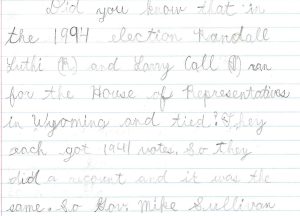 Did you know that in
the 1994 election Randall
Luthi (R) and Larry Call (I) ran
for the House of Representatives
in Wyoming and tied? They
each got 1941 votes. So they
did a recount and it was the
same. So Gov. Mike Sullivan